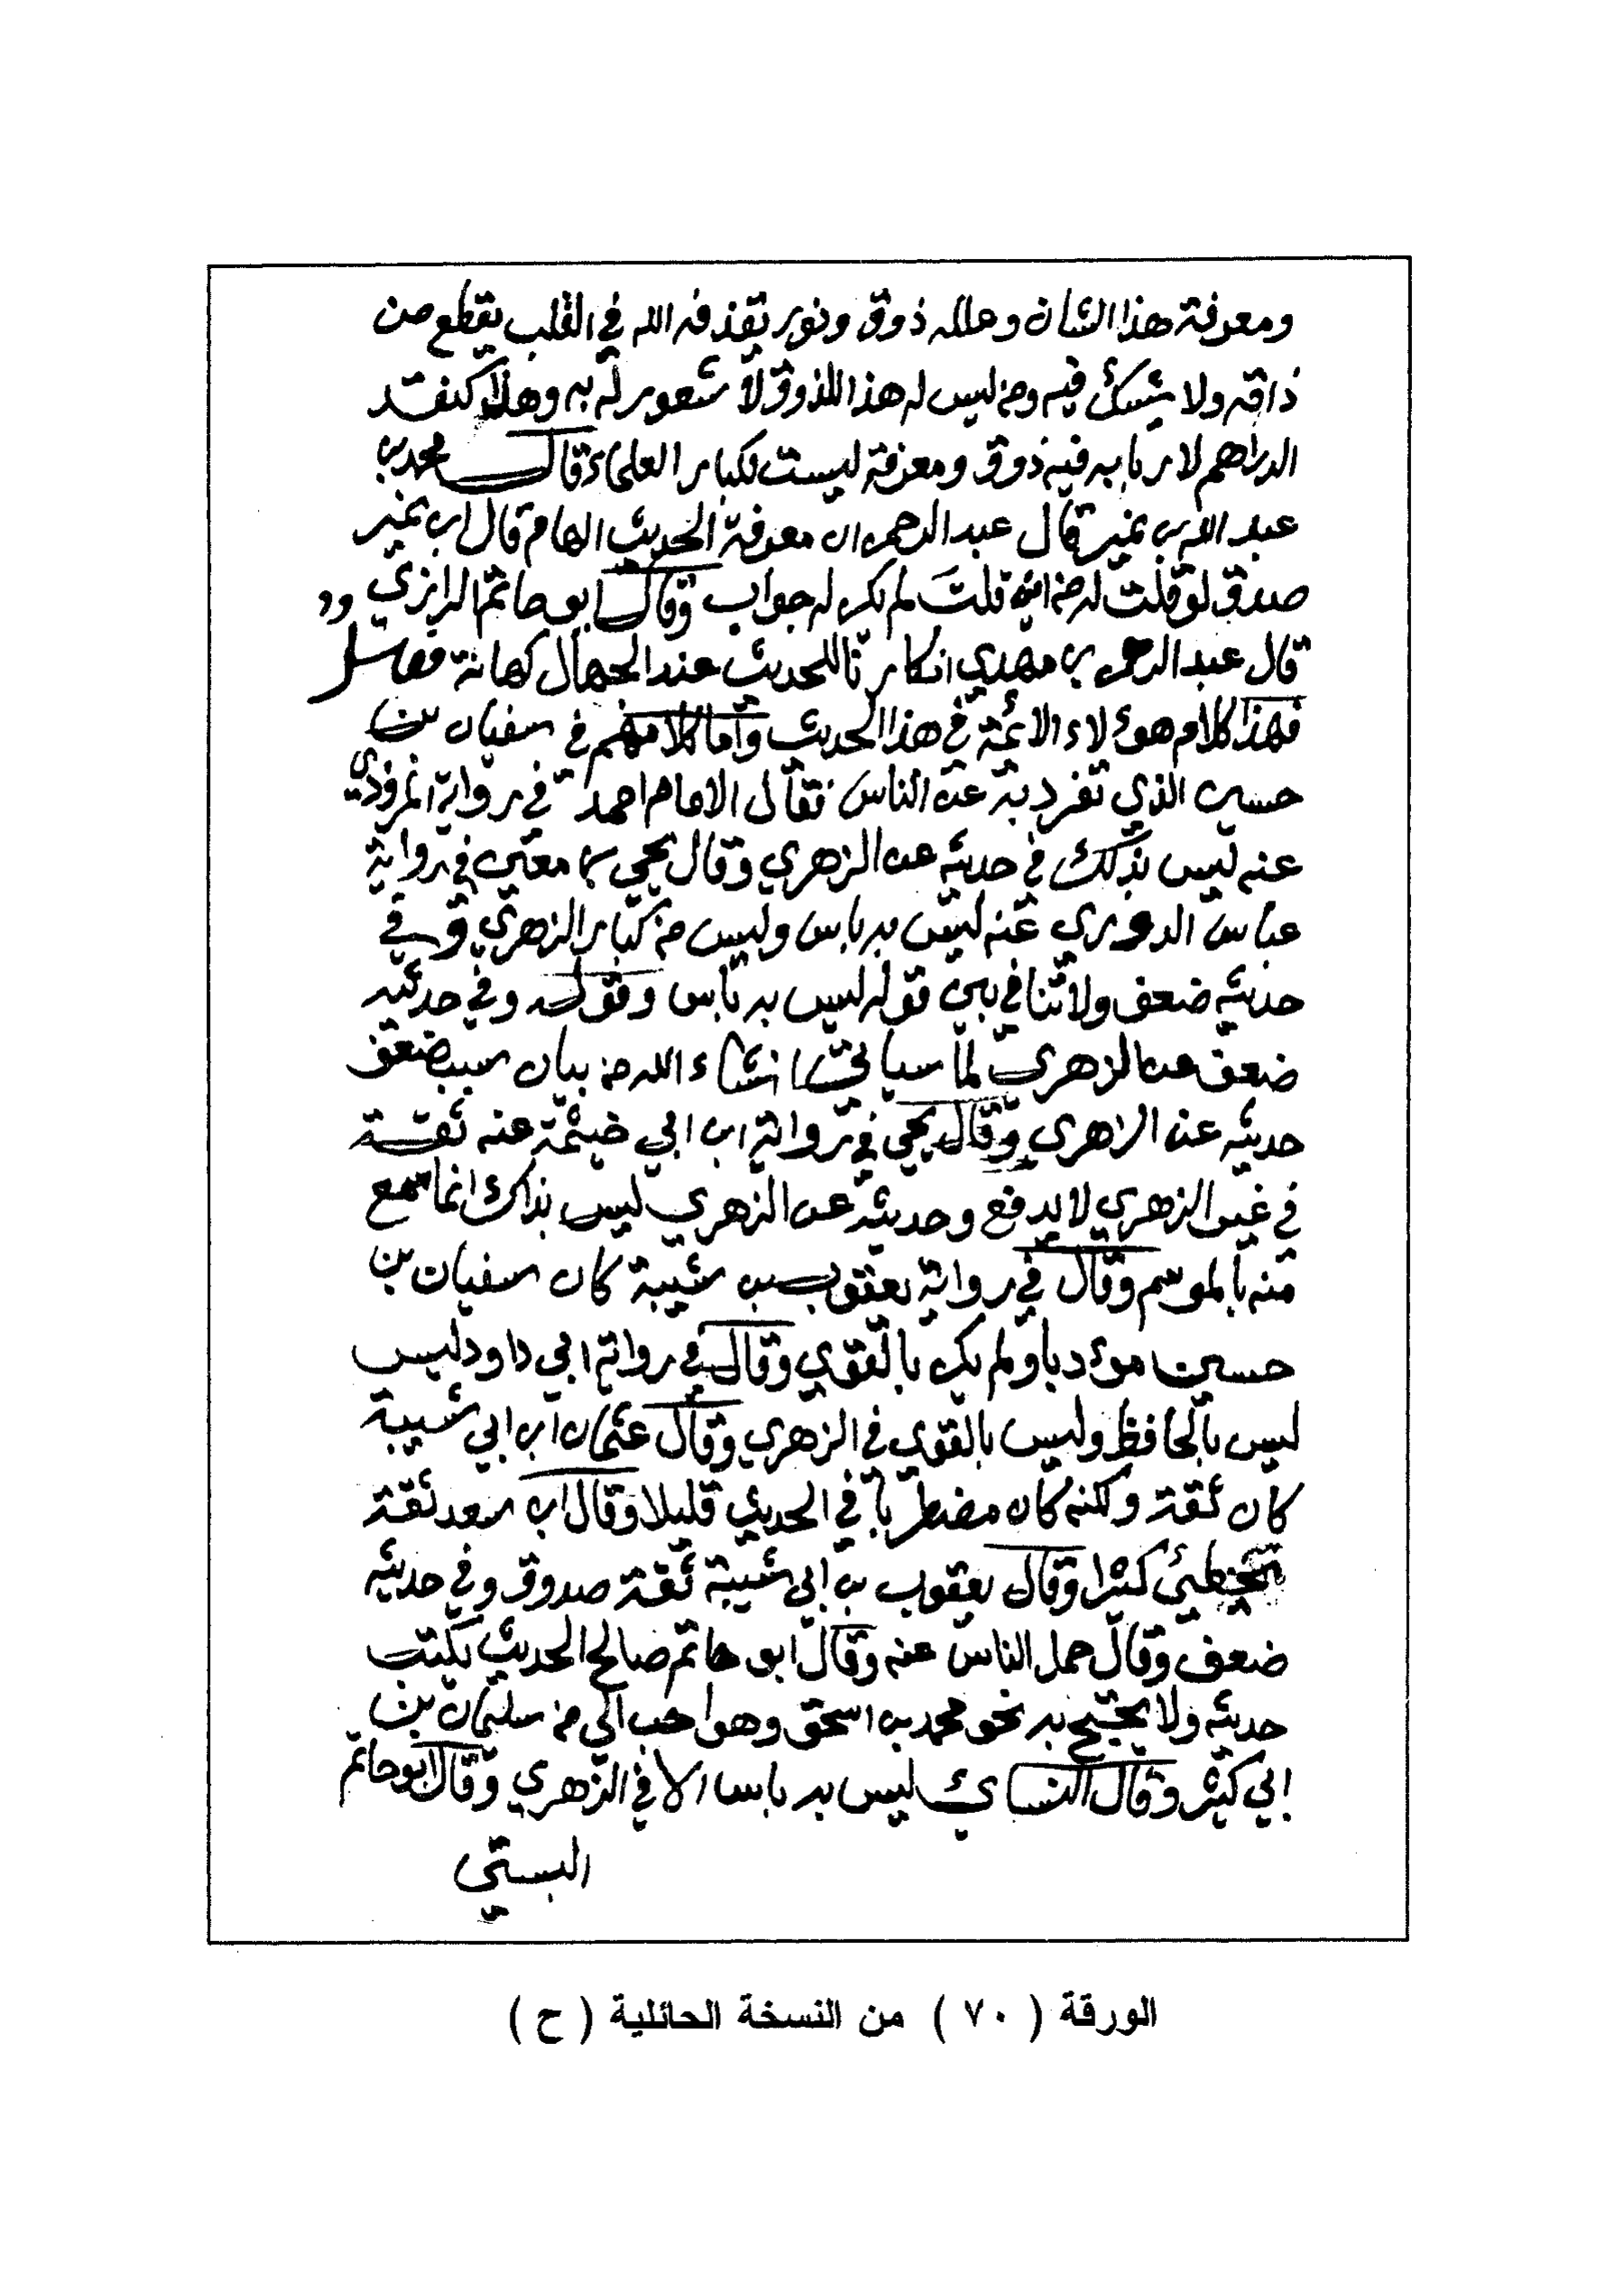 ومعرفة هذا الشان وعلله ذوق ونور يقذفه الله في القلب يقطع من
ذاقه ولا يشك فيه ومن ليس له هذا الذوق لا شعور له به وهذا كنقد
الدراهم لاربابه فيه ذوق ومعرفة ليست لكبار العلماء وقال محمد بن
عبد الله بن نمير قال عبد الرحمن ان معرفة الحديث الهام قال ابن نمير
صدق لو قلت له من اين قلت لم يكن له جواب وقال ابو حاتم الرازي
قال عبد الرحمن بن مهدي انكارنا للحديث عند الجهال كهانة
فهذا كلام هؤلاء الائمة في هذا الحديث واما كلامهم في سفيان بن
حسين الذي تفرد به عن الناس فقال الامام احمد في رواية المروذي
عنه ليس بذلك في حديثه عن الزهري وقال يحيى بن معين في رواية
عباس الدوري عنه ليس به باس وليس من كبار الزهري وفي
حديثه ضعف ولا تنافي بين قوله ليس به باس وقوله وفي حديثه
ضعف عن الزهري لما سياتي انشاء الله من بيان سبب ضعف
حديثه عن الزهري وقال يحيى في رواية ابن ابي خيثمة عنه ثقة
في غير الزهري لا يدفع وحديثه عن الزهري ليس بذاك انما سمع
منه بالموسم وقال في رواية يعقوب بن شيبة كان سفيان بن
حسين مؤدبا ولم يكن بالقوي وقال في رواية ابي داود ليس
ليس بالحافظ وليس بالقوي في الزهري وقال عثمان ابن ابي شيبة
كان ثقة ولكنه كان مضطربا في الحديث قليلا وقال ابن سعد ثقة
يخطئ كثيرا وقال يعقوب بن ابي شيبة ثقة صدوق وفي حديثه
ضعف وقال حمل الناس عنه وقال ابو حاتم صالح الحديث يكتب
حديثه ولا يحتج به نحو محمد بن اسحق وهو احب الي من سليمان بن
ابي كثير وقال النسائي ليس به باس الا في الزهري وقال ابو حاتم
البستي
الورقة ( ٧٠ ) من النسخة الحائلية ( ح )